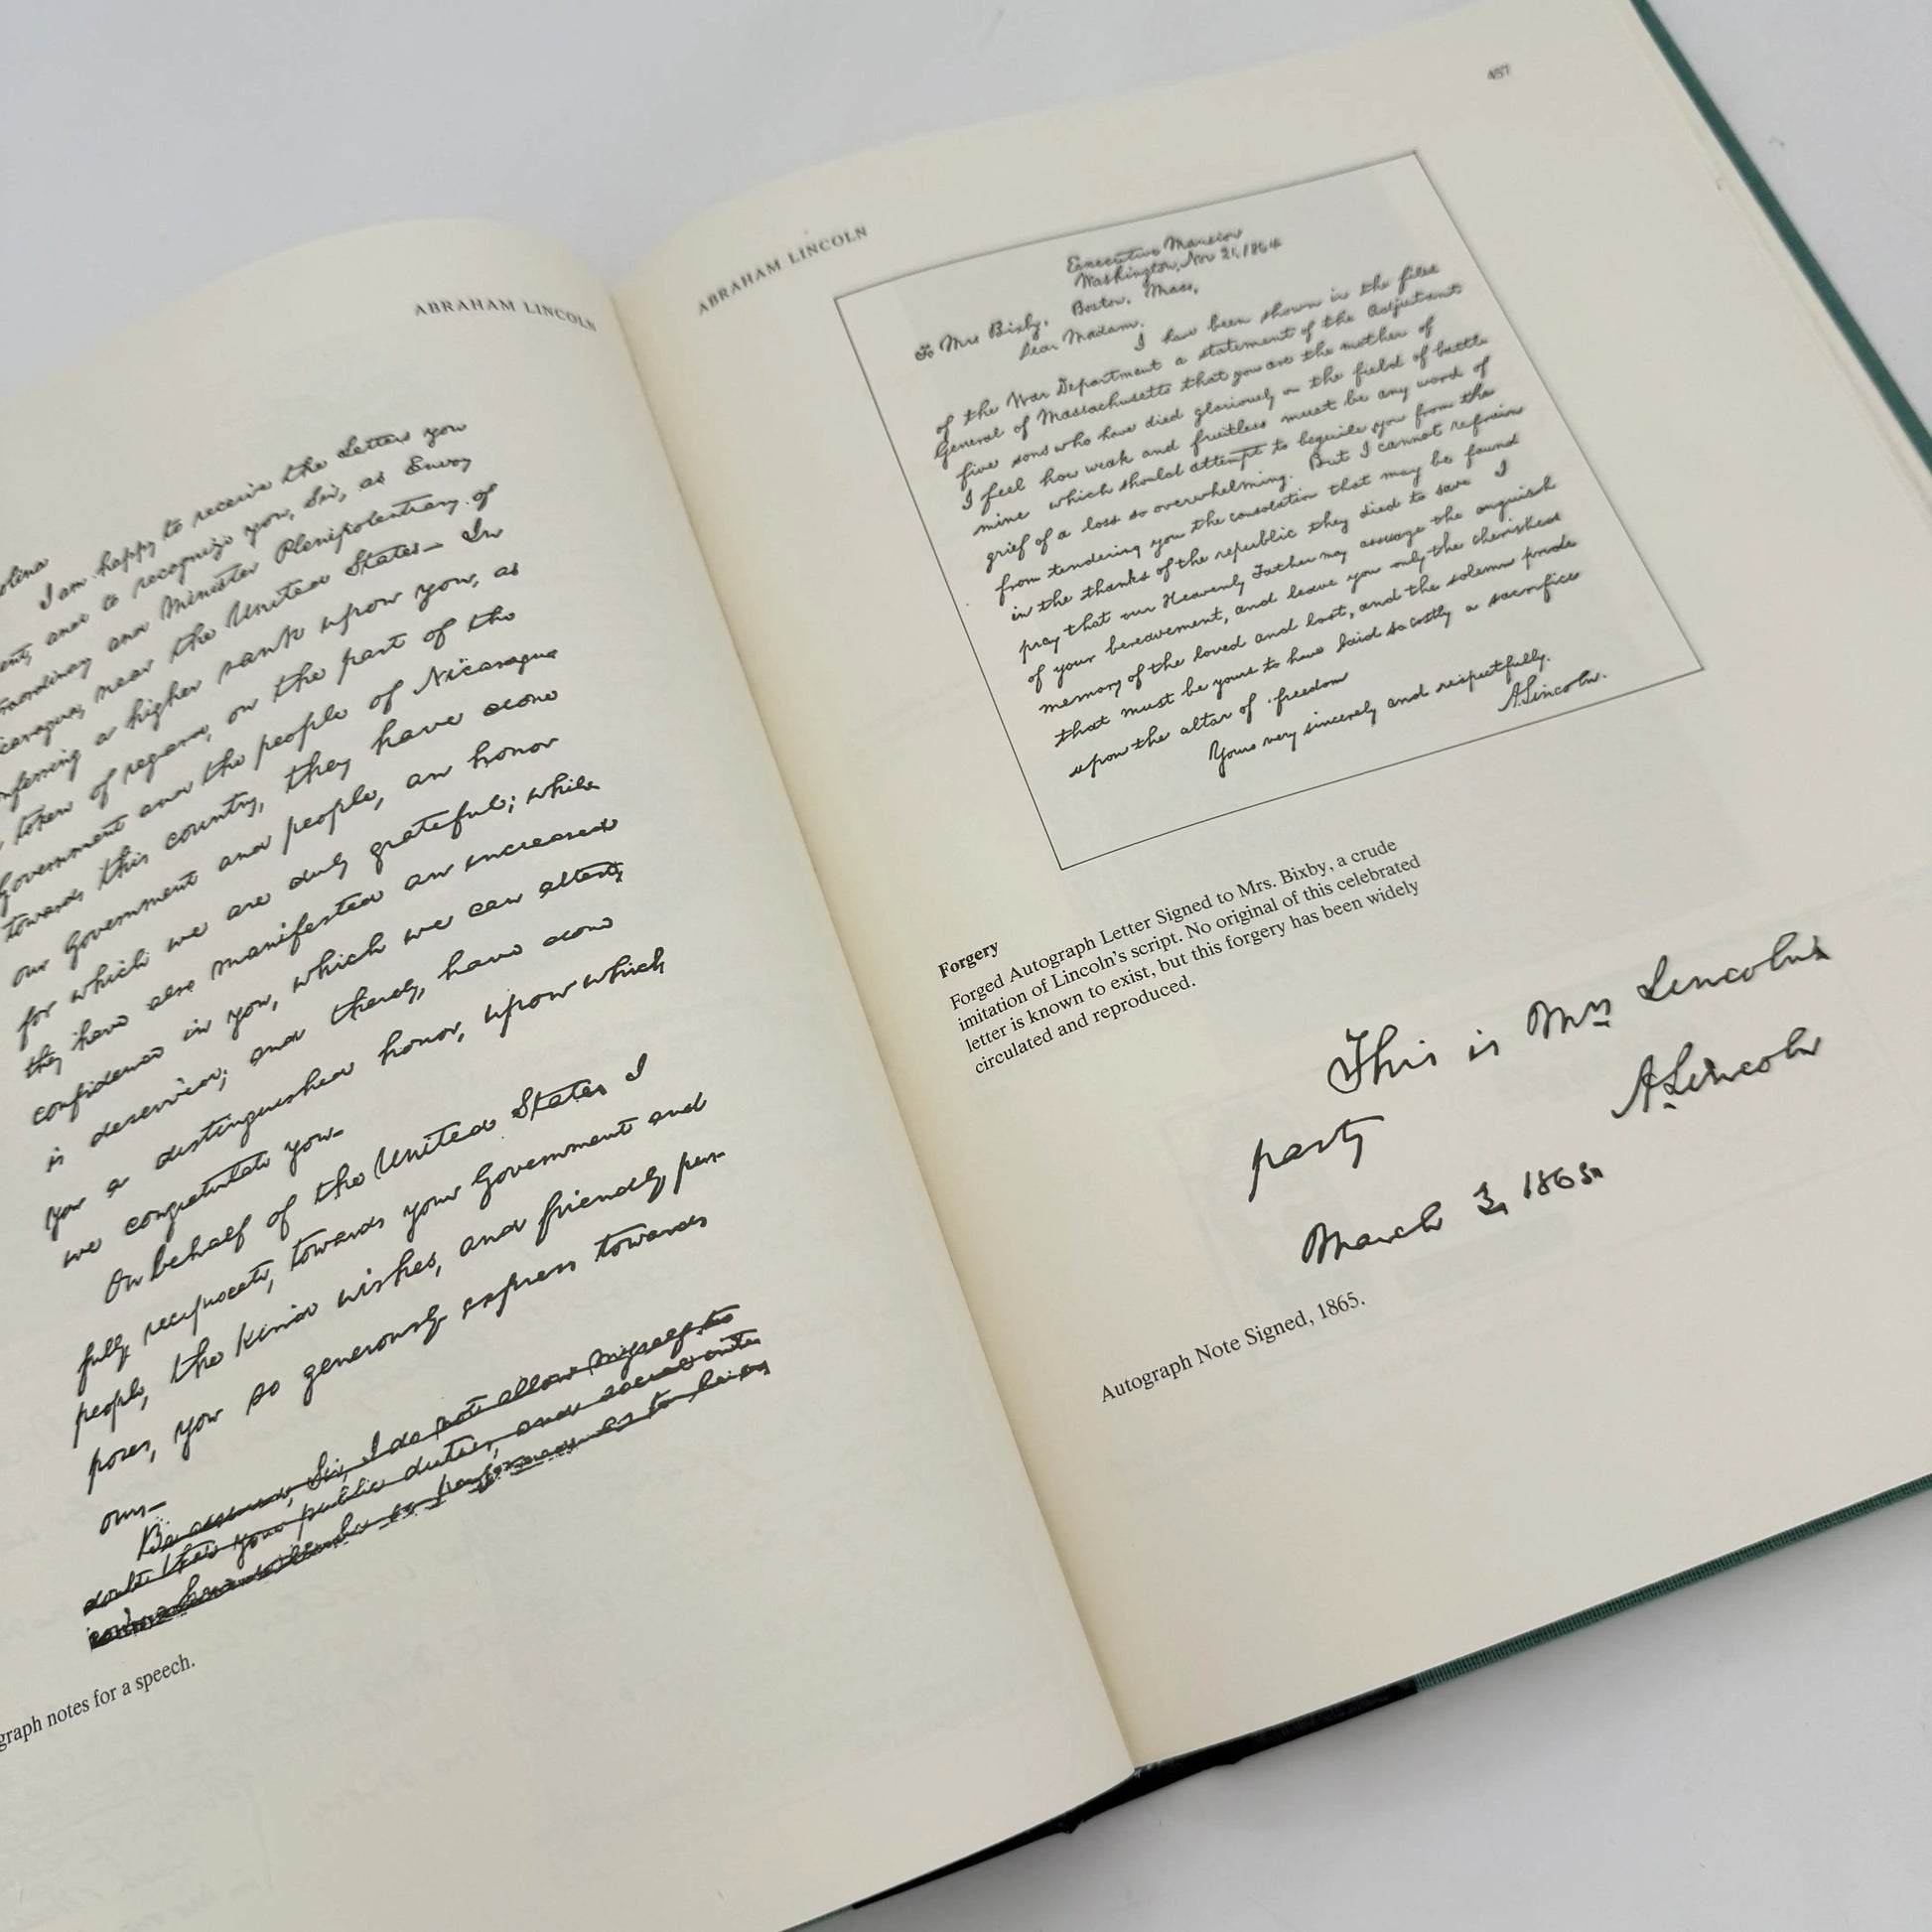 ABRAHAM LINCOLN
I am happy to receive the Letters you
and to recognize you, Sir, as Envoy
and Minister Plenipotentiary of
near the United States— In
a higher rank upon you, as
token of regard, on the part of the
Government and the people of Nicaragua
towards this country, they have done
our Government and people, an honor
for which we are duly grateful; while
they have also manifested an increased
confidence in you, which we can attest,
is deserved; and thereby, have done
you a distinguished honor, upon which
we congratulate you—
On behalf of the United States I
fully reciprocate, towards your Government and
people, the kind wishes, and friendly pur-
poses, you so generously express towards
ours—
Be assured, Sir, I do not allow myself to
doubt that your public duties, and social
graph notes for a speech.
ABRAHAM LINCOLN
Executive Mansion
Washington, Nov 21, 1864
To Mrs Bixby,
Boston, Mass,
Dear Madam.
I have been shown in the files
of the War Department a statement of the Adjutant
General of Massachusetts that you are the mother of
five sons who have died gloriously on the field of battle
I feel how weak and fruitless must be any word of
mine which should attempt to beguile you from the
grief of a loss so overwhelming. But I cannot refrain
from tendering you the consolation that may be found
in the thanks of the republic they died to save I
pray that our Heavenly Father may assuage the anguish
of your bereavement, and leave you only the cherished
memory of the loved and lost, and the solemn pride
that must be yours to have laid so costly a sacrifice
upon the altar of freedom
Yours very sincerely and respectfully.
A. Lincoln.
Forgery
Forged Autograph Letter Signed to Mrs. Bixby, a crude
imitation of Lincoln's script. No original of this celebrated
letter is known to exist, but this forgery has been widely
circulated and reproduced.
This is Mrs Lincoln's
party
A. Lincoln
March 3, 1865.
Autograph Note Signed, 1865.